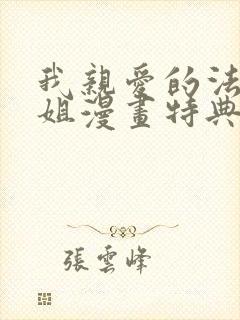 我親愛的法
姐漫畫特典
張雲峰